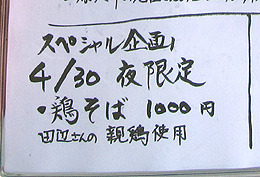 スペシャル企画!
4/30 夜限定
・鶏そば 1000円
田辺さんの親鶏使用